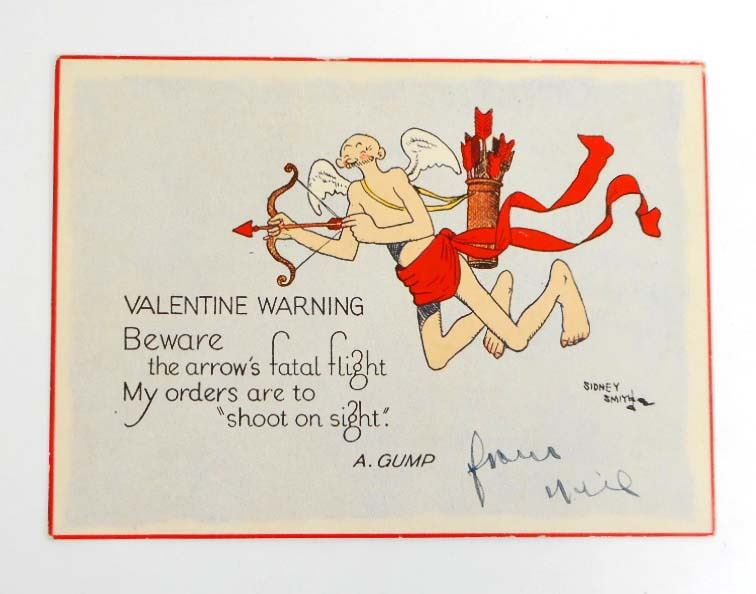 VALENTINE WARNING
Beware
the arrow's fatal flight
My orders are to
"shoot on sight".
A. GUMP
SIDNEY
SMITH
from